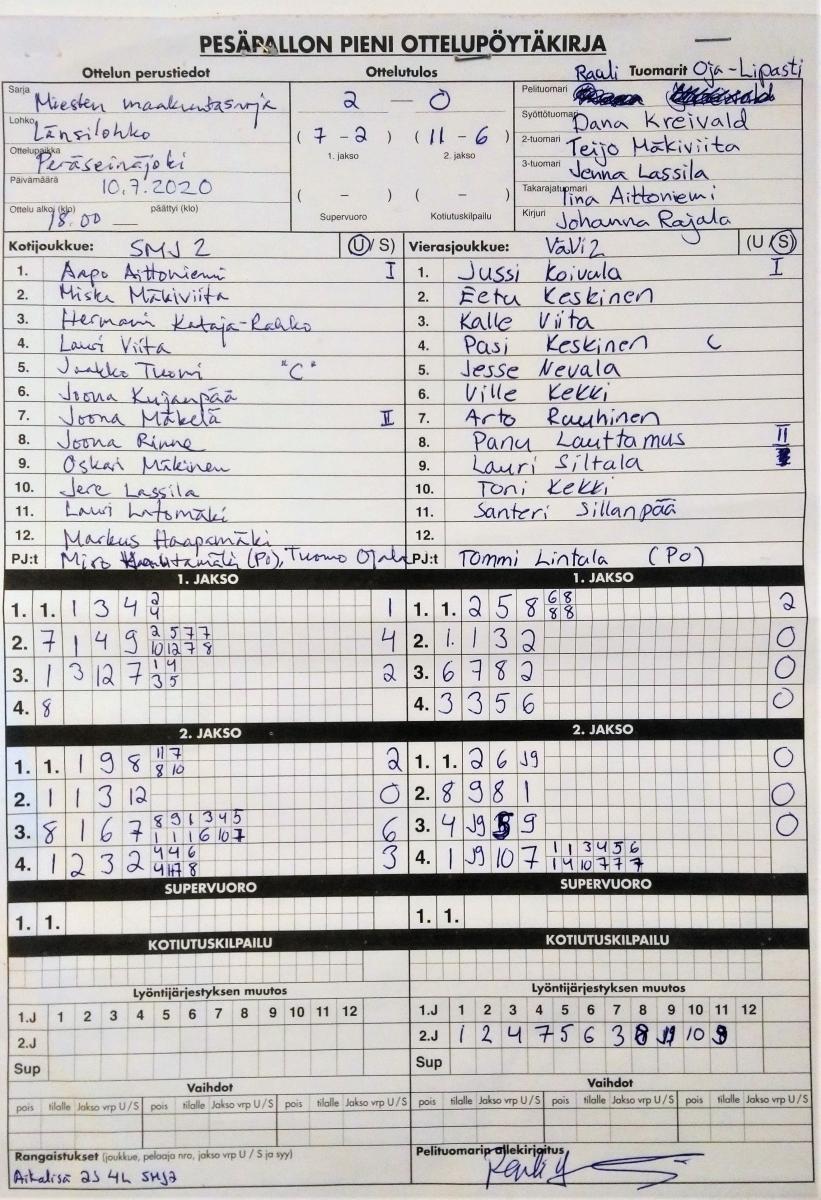 PESÄPALLON PIENI OTTELUPÖYTÄKIRJA
Ottelun perustiedot Ottelutulos Rauli Tuomarit Oja-Lipasti
Sarja Miesten maakuntasarja 2 — 0 Pelituomari
Lohko Länsilohko (7 - 2) (11 - 6) Syöttötuomari Dana Kreivald
1. jakso 2. jakso 2-tuomari Teijo Mäkiviita
Ottelupaikka Peräseinäjoki 3-tuomari Jenna Lassila
Päivämäärä 10.7.2020 ( - ) ( - ) Takarajatuomari Tiina Aittoniemi
Ottelu alkoi (klo) 18.00 päättyi (klo) Supervuoro Kotiutuskilpailu Kirjuri Johanna Rajala
Kotijoukkue: SMJ 2 (U/ S) Vierasjoukkue: VäVi2 (U / S)
1. Aapo Aittoniemi I 1. Jussi Koivula I
2. Miska Mäkiviita 2. Eetu Keskinen
3. Hermanni Kataja-Rahko 3. Kalle Viita
4. Lauri Viita 4. Pasi Keskinen C
5. Jaakko Tuomi "C" 5. Jesse Nevala
6. Joona Kujanpää 6. Ville Kekki
7. Joona Mäkelä II 7. Arto Rauhinen
8. Joona Rinne 8. Panu Lauttamus II
9. Oskari Mäkinen 9. Lauri Siltala
10. Jere Lassila 10. Toni Kekki
11. Lauri Latomäki 11. Santeri Sillanpää
12. Markus Haapamäki 12.
PJ:t Miro (Po), Tuomo Ojala PJ:t Tommi Lintala (Po)
1. JAKSO 1. JAKSO
1. 1. 1 3 4 2 1 1. 1. 2 5 8 6 8 2
4 8 8
2. 7 1 4 9 2 5 7 7 4 2. 1. 1 3 2 0
10 12 7 8
3. 1 3 12 7 1 4 2 3. 6 7 8 2 0
3 5
4. 8 4. 3 3 5 6 0
2. JAKSO 2. JAKSO
1. 1. 1 9 8 11 7 2 1. 1. 2 6 J9 0
8 10
2. 1 1 3 12 0 2. 8 9 8 1 0
3. 8 1 6 7 8 9 1 3 4 5 6 3. 4 J9 5 9 0
1 1 1 6 10 7
4. 1 2 3 2 4 4 6 3 4. 1 J9 10 7 1 1 3 4 5 6
8 1 4 10 7 7 7
SUPERVUORO SUPERVUORO
1. 1. 1. 1.
KOTIUTUSKILPAILU KOTIUTUSKILPAILU
Lyöntijärjestyksen muutos Lyöntijärjestyksen muutos
1.J 1 2 3 4 5 6 7 8 9 10 11 12 1.J 1 2 3 4 5 6 7 8 9 10 11 12
2.J 2.J 1 2 4 7 5 6 3 8 10 9
Sup Sup
Vaihdot Vaihdot
pois tilalle Jakso vrp U / S pois tilalle Jakso vrp U / S pois tilalle Jakso vrp U / S pois tilalle Jakso vrp U / S pois tilalle Jakso vrp U / S pois tilalle Jakso vrp U / S
Rangaistukset (joukkue, pelaaja nro, jakso vrp U / S ja syy) Pelituomarin allekirjoitus
Aikalisä 2J 4L SMJ2